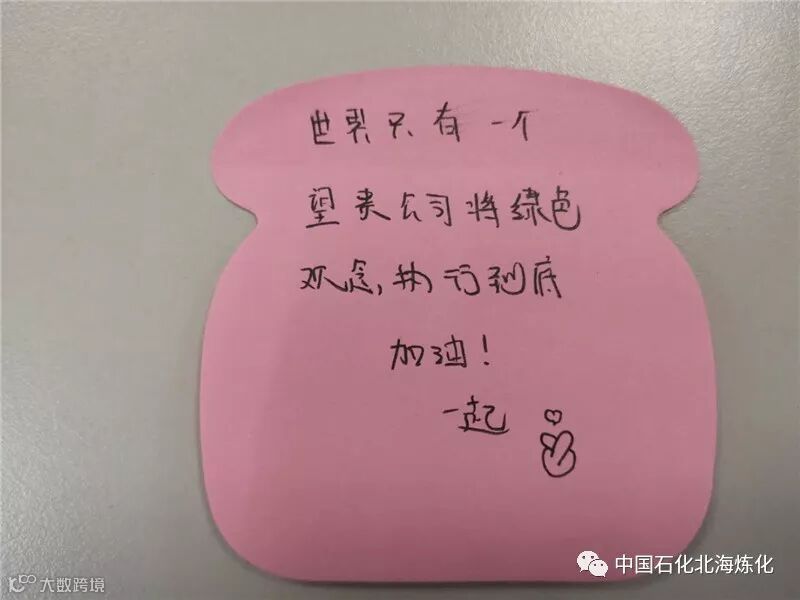 世界只有一个
望贵公司将绿色
观念,执行到底
加油!
一起
中国石化北海炼化
大数跨境